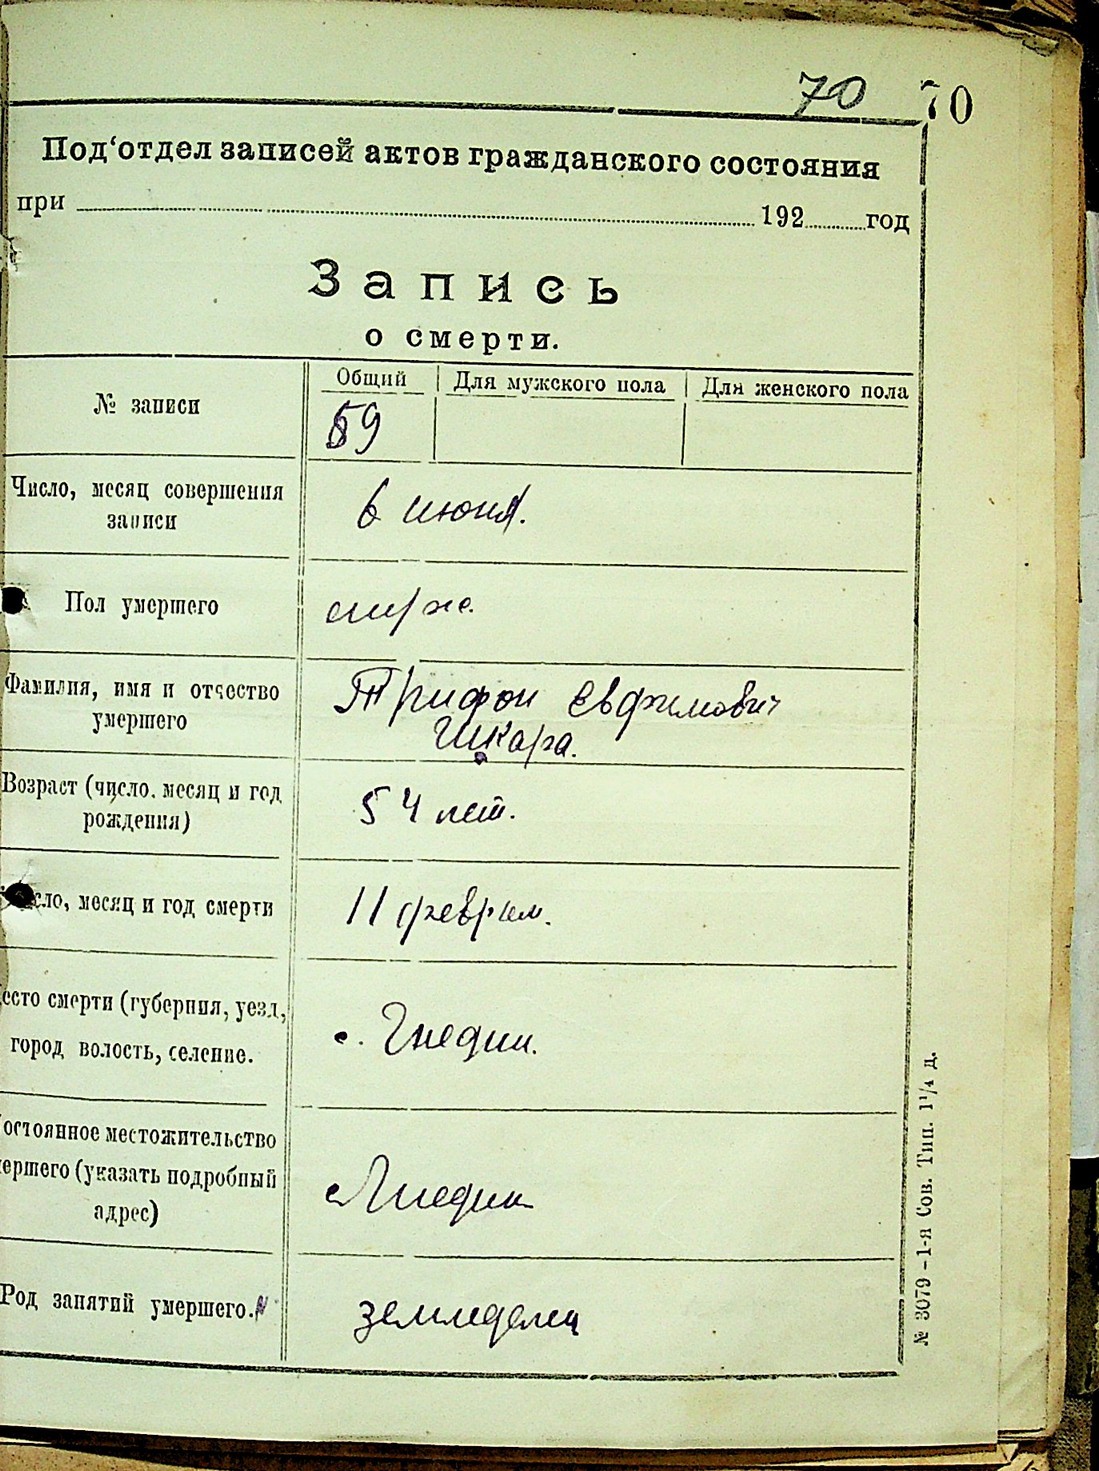 70 70
Под'отдел записей актов гражданского состояния
при 192 год
Запись
о смерти.
№ записи
Общий Для мужского пола Для женского пола
59
Число, месяц совершения
записи
6 июня.
Пол умершего
муже.
Фамилия, имя и отчество
умершего
Трифон Евфимович
Шкара.
Возраст (число, месяц и год
рождения)
54 лет.
сло, месяц и год смерти
11 феврал.
есто смерти (губерния, уезд,
город волость, селение.
с. Гнедин.
остоянное местожительство
мершего (указать подробный
адрес)
с Гнедин
Род занятий умершего.
земледелец
№ 3079 -1-я Сов. Тип. 1¹/₄ д.